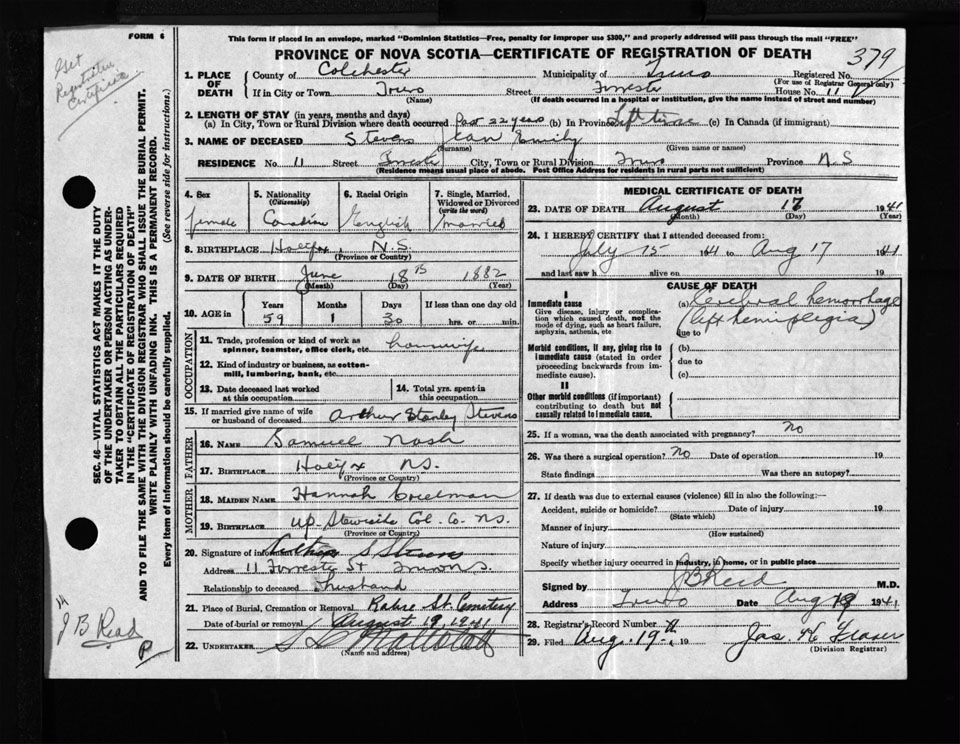 FORM 6
This form if placed in an envelope, marked "Dominion Statistics—Free, penalty for improper use $300," and properly addressed will pass through the mail "FREE"
PROVINCE OF NOVA SCOTIA—CERTIFICATE OF REGISTRATION OF DEATH
379
Get Registration Certificate
1. PLACE OF DEATH
County of Colchester Municipality of Truro Registered No.
(For use of Registrar General only)
If in City or Town Truro Street Forrester House No. 11
(Name) (If death occurred in a hospital or institution, give the name instead of street and number)
2. LENGTH OF STAY (in years, months and days)
(a) In City, Town or Rural Division where death occurred Past 22 years (b) In Province Life time (c) In Canada (if immigrant)
3. NAME OF DECEASED Stevens Jean Emily
(Surname) (Given name or names)
RESIDENCE No. 11 Street Forrester City, Town or Rural Division Truro Province N.S
(Residence means usual place of abode. Post Office Address for residents in rural parts not sufficient)
4. Sex female
5. Nationality (Citizenship) Canadian
6. Racial Origin English
7. Single, Married, Widowed or Divorced (write the word) Married
8. BIRTHPLACE Halifax, N.S.
(Province or Country)
9. DATE OF BIRTH June 18th 1882
(Month) (Day) (Year)
10. AGE in Years Months Days If less than one day old
59 1 30 hrs. or min.
OCCUPATION
11. Trade, profession or kind of work as spinner, teamster, office clerk, etc. housewife
12. Kind of industry or business, as cotton-mill, lumbering, bank, etc.
13. Date deceased last worked at this occupation
14. Total yrs. spent in this occupation
15. If married give name of wife or husband of deceased Arthur Stanley Stevens
FATHER
16. NAME Samuel Nash
17. BIRTHPLACE Halifax N.S.
(Province or Country)
MOTHER
18. MAIDEN NAME Hannah Creelman
19. BIRTHPLACE Up. Stewiacke Col. Co. N.S.
(Province or Country)
20. Signature of informant Arthur S Stevens
Address 11 Forrester St Truro N.S.
Relationship to deceased Husband
21. Place of Burial, Cremation or Removal Robie St. Cemetery
Date of burial or removal August 19, 1941
22. UNDERTAKER
(Name and address)
MEDICAL CERTIFICATE OF DEATH
23. DATE OF DEATH August 17 1941
(Month) (Day)
24. I HEREBY CERTIFY that I attended deceased from:
July 15 1941 to Aug 17 1941
and last saw h alive on 19
CAUSE OF DEATH
I
Immediate cause
Give disease, injury or complication which caused death, not the mode of dying, such as heart failure, asphyxia, asthenia, etc.
(a) Cerebral hemorrhage
(left hemiplegia)
due to
Morbid conditions, if any, giving rise to immediate cause (stated in order proceeding backwards from immediate cause).
(b)
due to
(c)
II
Other morbid conditions (if important) contributing to death but not causally related to immediate cause.
25. If a woman, was the death associated with pregnancy? No
26. Was there a surgical operation? No Date of operation 19
State findings Was there an autopsy?
27. If death was due to external causes (violence) fill in also the following:—
Accident, suicide or homicide? Date of injury 19
(State which)
Manner of injury
(How sustained)
Nature of injury
Specify whether injury occurred in industry, in home, or in public place
Signed by J B Reid M.D.
Address Truro Date Aug 1941
28. Registrar's Record Number
29. Filed Aug. 19 19 Jas. H Fraser
(Division Registrar)
SEC. 46—VITAL STATISTICS ACT MAKES IT THE DUTY
OF THE UNDERTAKER OR PERSON ACTING AS UNDER-
TAKER TO OBTAIN ALL THE PARTICULARS REQUIRED
IN THE "CERTIFICATE OF REGISTRATION OF DEATH"
AND TO FILE THE SAME WITH THE DIVISION REGISTRAR WHO SHALL ISSUE THE BURIAL PERMIT.
WRITE PLAINLY WITH UNFADING INK. THIS IS A PERMANENT RECORD.
Every item of information should be carefully supplied. (See reverse side for instructions.)
J B Read
P